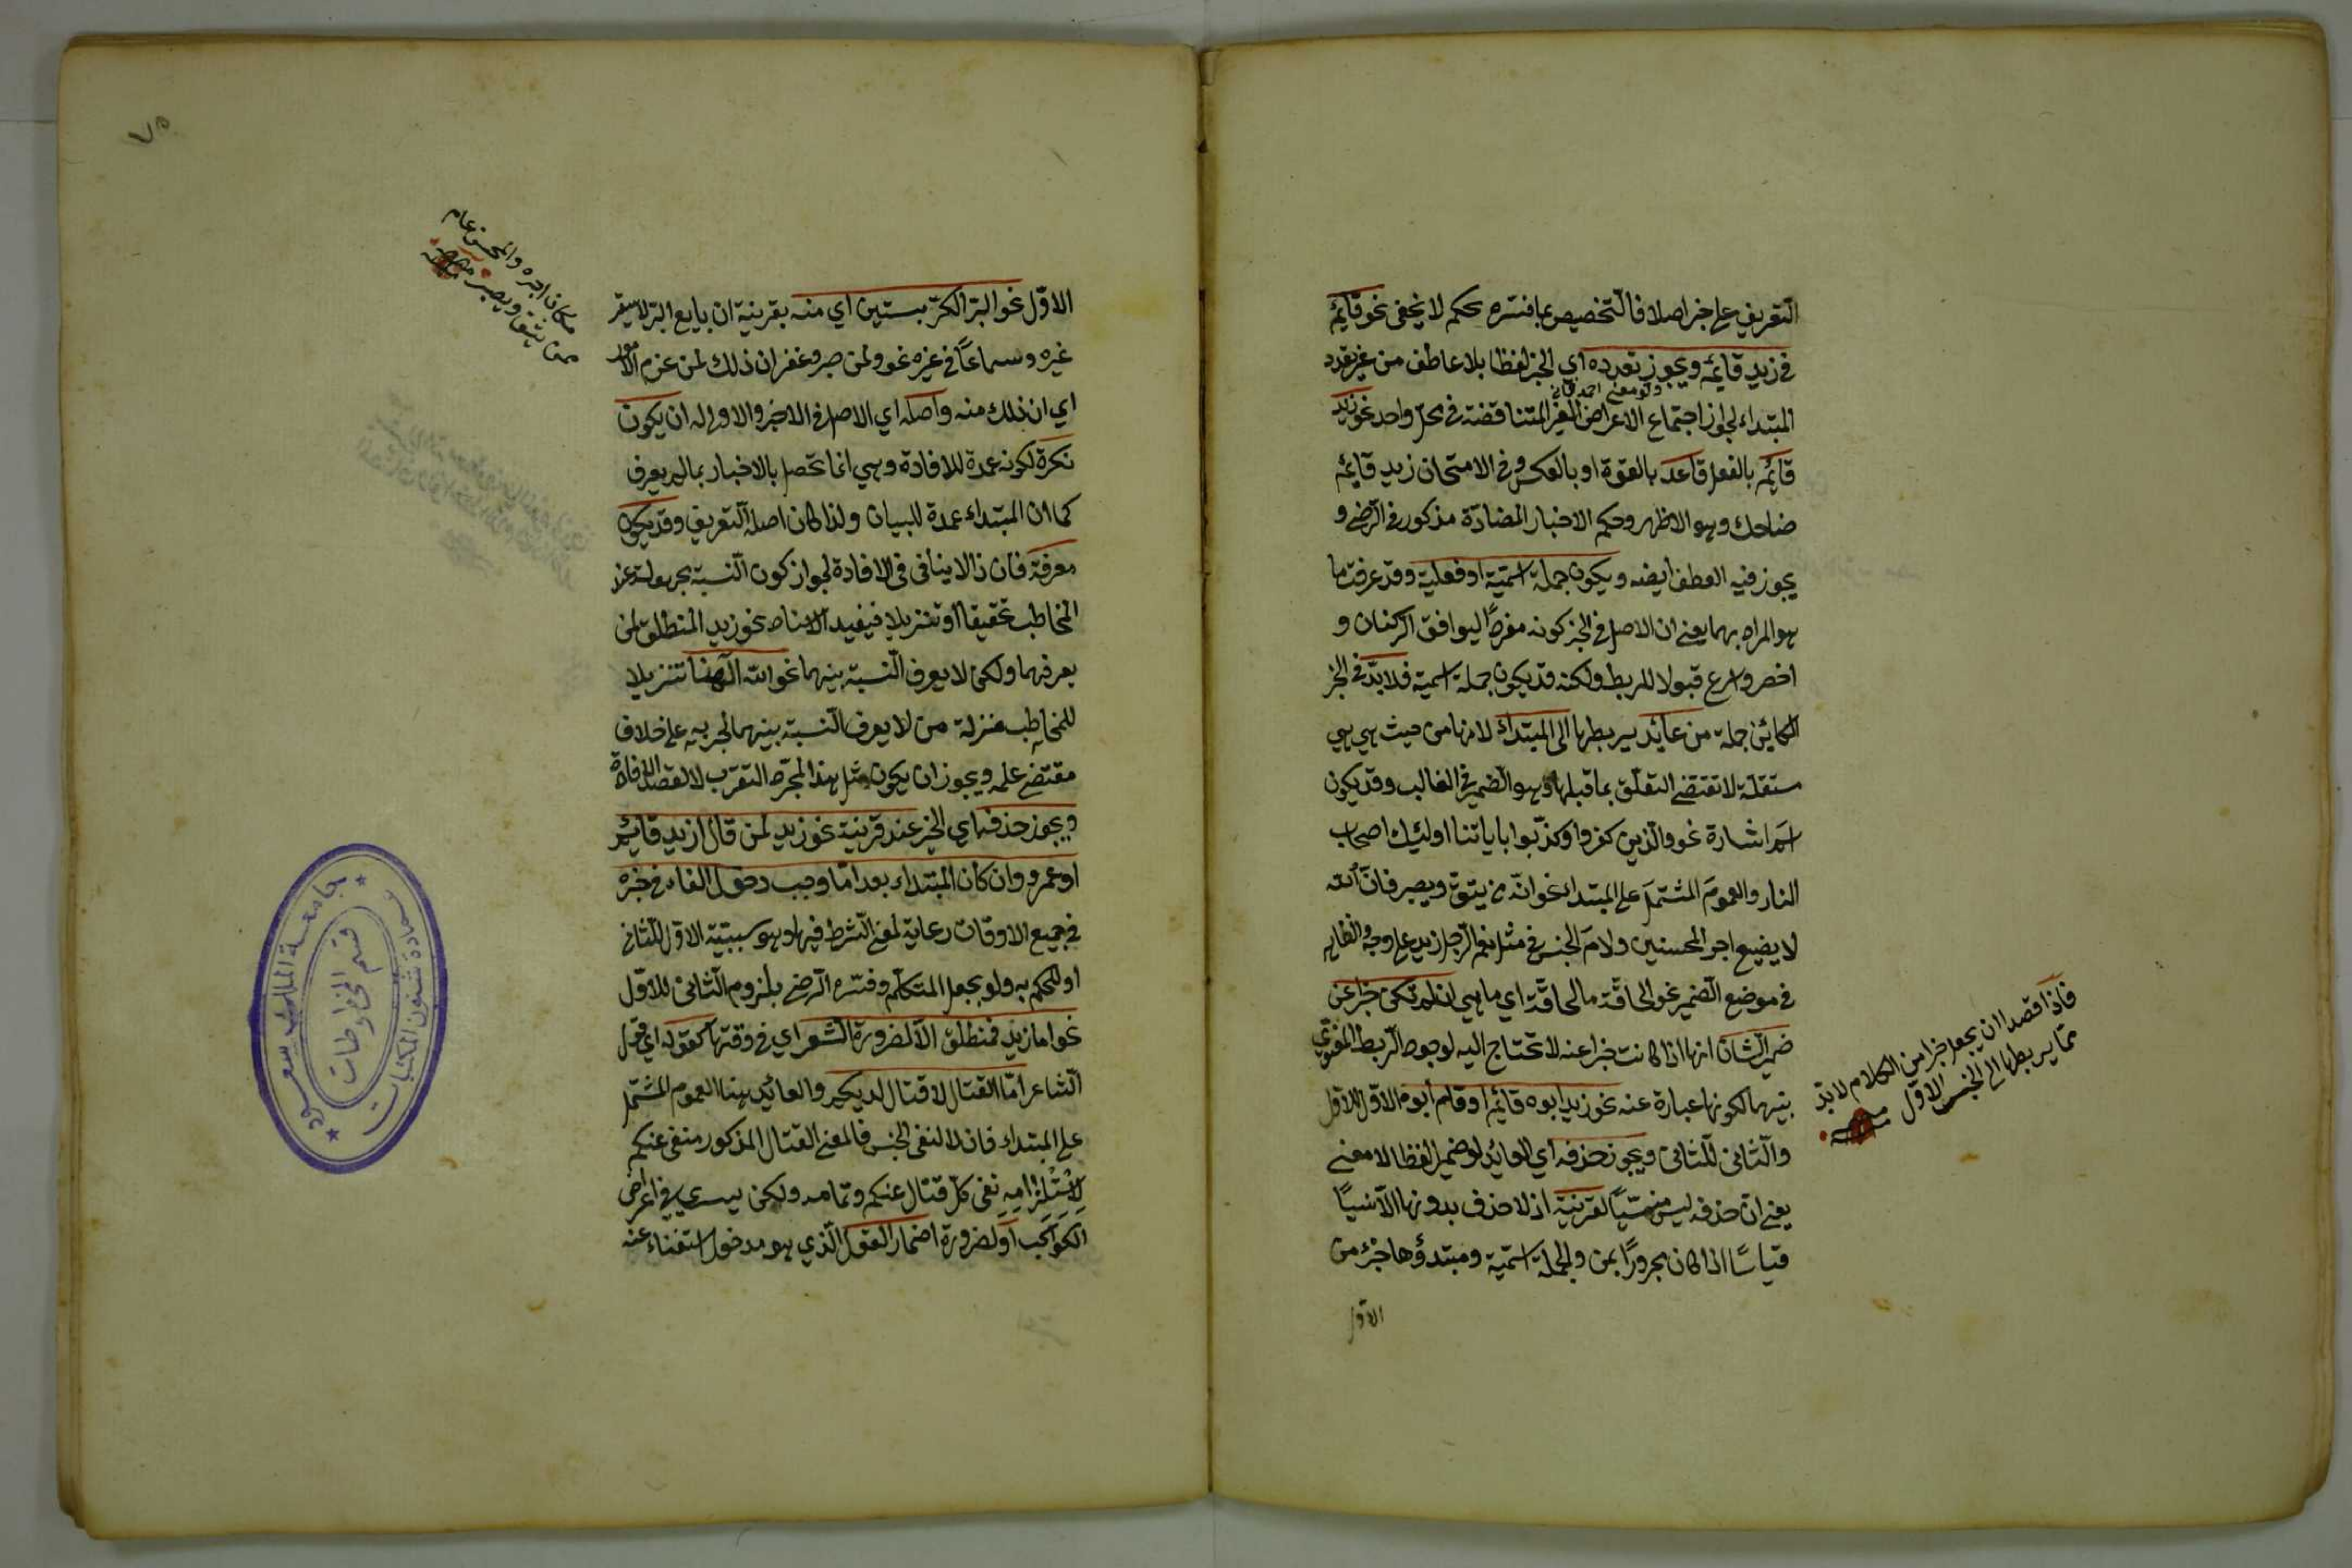 التعريف على خبر اصلا فالتخصيص بما فسره بحكم لا يخفى نحو قائم
في زيد قائم ويجوز تعدده اي الخبر لفظا بلا عاطف من غير تعدد
ولو معنى
المبتداء لجواز اجتماع الاعراض الغير المتناقضة في محل واحد نحو زيد
قائم بالفعل قاعد بالقوة او بالعكس وفي الامتحان زيد قائم
ضاحك وهو الاظهر وحكم الاخبار المضادة مذكور في الرضي و
يجوز فيه العطف ايضه ويكون جملة اسمية او فعلية وقد عرفت ما
هو المراد بهما يعنى ان الاصل في الخبر كونه مفردًا ليوافق الركنان و
اخصر واسرع قبولا للربط ولكنه قد يكون جملة اسمية فلا بد في الخبر
الكائن جملة من عائد يربطها الى المبتداء لانها من حيث هي هي
مستقلة لا تقتضي التعلق بما قبلها وهو الضمير في الغالب وقد يكون
اسم اشارة نحو والذين كفروا وكذبوا باياتنا اولئك اصحاب
النار والعموم المشتمل على المبتداء نحو انه من يتق ويصبر فان الله
لا يضيع اجر المحسنين ولام الجنس في مثل نعم الرجل زيد على وجه والظاهر
في موضع الضمير نحو الحاقة ما الحاقة اي ما هي ان لم تكن خبرا عن
ضمير الشان انها اذا كانت خبرا عنه لا تحتاج اليه لوجود الربط المعنوي
بينهما لكونها عبارة عنه نحو زيد ابوه قائم او قام ابوه الاول للاول
والثاني للثاني ويجوز حذفه اي العائد لو ضميرا لفظا لا معنى
يعنى ان حذفه ليس منسيًّا لقرينة اذ لا حذف بدونها الا نسيًا
قياسًا اذا كان مجرورًا بمن والجملة اسمية ومبتدؤها جزء من
الاول
فاذا قصدا ان يجعل جزا من الكلام لا بد
مما يربطها الى الجنس الاول
٧٥
الاول نحو البر الكر بستين اي منه بقرينة ان بايع البر لا يسعر
غيره وسماعًا في غيره نحو ولمن صبر وغفر ان ذلك لمن عزم الامور
اي ان ذلك منه واصله اي الاصل في الاخبر والاولى له ان يكون
نكرة لكونه عمدة للافادة وهي انما تحصل بالاخبار بما لم يعرف
كما ان المبتداء عمدة للبيان ولذا كان اصله التعريف وقد يكون
معرفة فان ذا لا ينافى في الافادة لجواز كون النسبة مجهولة عند
المخاطب تحقيقا او تنزيلا فيفيد الاسناد نحو زيد المنطلق لمن
يعرفهما ولكن لا يعرف النسبة بينهما نحو الله الهنا تنزيلا
للمخاطب منزلة من لا يعرف النسبة بينهما لجريه على خلاف
مقتضى علمه ويجوز ان يكون مثل هذا لمجرد التقرب لا لقصد الافادة
ويجوز حذفه اي الخبر عند قرينة نحو زيد لمن قال ازيد قائم
او عمرو وان كان المبتداء بعد اما وجب دخول الفاء في خبره
في جميع الاوقات رعاية لمعنى الشرط فيها وهو سببية الاول للثاني
او للحكم به ولو بجعل المتكلم وفسره الرضي بلزوم الثاني للاول
نحو اما زيد فمنطلق الا لضرورة الشعر اي في وقتها كقوله اي قول
الشاعر اما القتال لا قتال لديكم والعائد هنا العموم المشتمل
على المبتداء فان لا لنفي الجنس فالمعنى القتال المذكور منفي عنكم
لاستلزامه نفي كل قتال عنكم وتمامه ولكن سيرا في عراض
الكواكب او لضرورة اضمار القول الذي هو مدخول استغناء عنه
مكان اجره والمحسن عام
ممن يتقى ويصبر
جامعة الملك سعود
قسم المخطوطات
عمادة شئون المكتبات